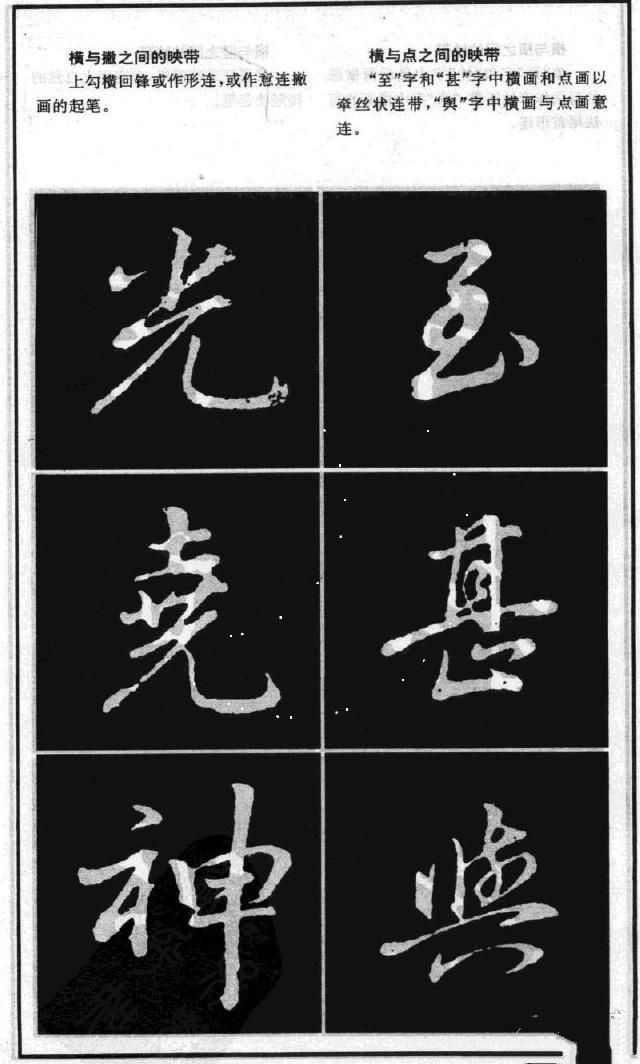 横与点之间的映带
“至”字和“甚”字中横画和点画以
牵丝状连带，“舆”字中横画与点画意
连。
至
甚
與
横与撇之间的映带
上勾横回锋或作形连，或作意连撇
画的起笔。
光
尭
神